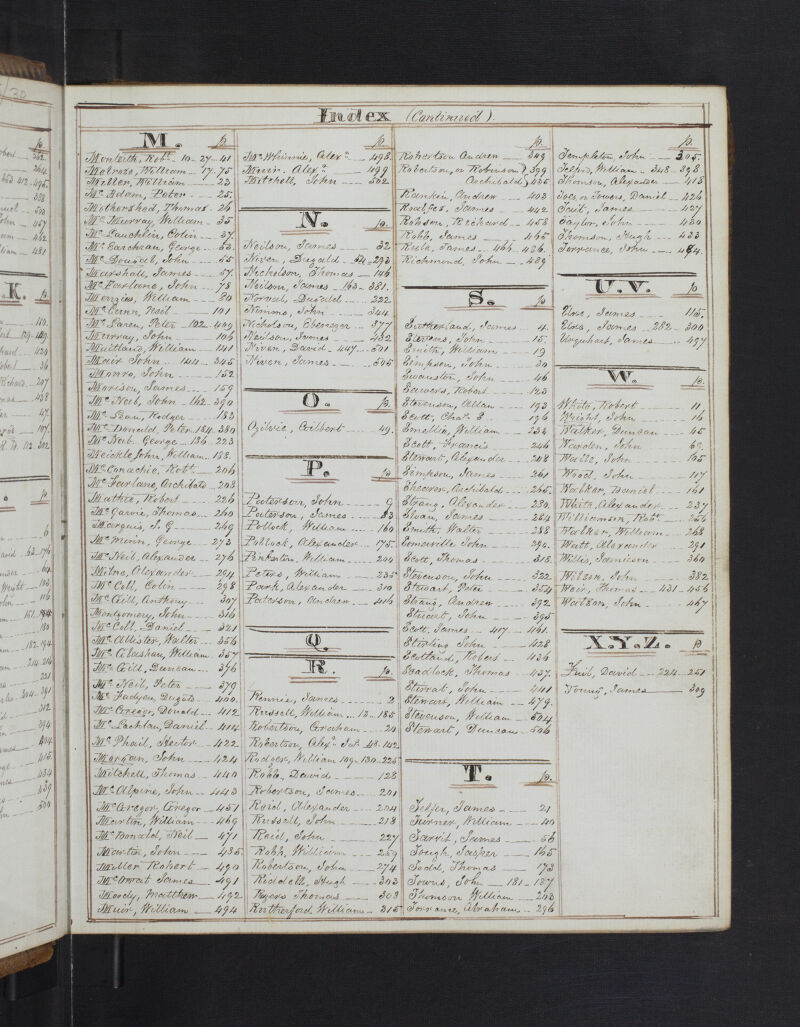 Index (Continued).
M. p.
Monteith, Robt. 10-27-41
Melrose, William 17-75
Miller, William 23
Mc Adam, Peter 25
Mothershed, Thomas 26
Mc Murray, William 35
Mc Lauchlin, Colin 37
Mc Eachran, George 53
Mc Dougall, John 55
Marshall, James 57
Mc Farlane, John 78
Menzies, William 80
Mc Cunn, Neil 101
Mc Laren, Peter 102-409
Murray, John 106
Maitland, William 141
Mair John 144-345
Munro, John 152
Morison, James 159
Mc Neil, John 162-390
Mc Lean, Rodger 183
Mc Donald, Peter 184-380
Mc Nab, George 186-223
Meickle John, William 188
Mc Conachie, Robt. 206
Mc Farlane, Archibald 208
Mather, Robert 226
Mc Garvie, Thomas 260
Marquis, J. G. 269
Mc Minn, George 273
Mc Neil, Alexander 276
Milne, Alexander 294
Mc Coll, Colin 298
Mc Gill, Anthony 307
Montgomery, John 316
Mc Coll, Daniel 321
Mc Allister, Walter 356
Mc Clashan, William 357
Mc Gill, Duncan 376
Mc Neil, Peter 379
Mc Fadyen, Dugald 400
Mc Gregor, Donald 412
Mc Lachlan, Daniel 414
Mc Phail, Hector 422
Morgan, John 424
Mitchell, Thomas 440
Mc Alpine, John 443
Mc Gregor, Gregor 451
Martin, William 469
Mc Donald, Neil 471
Martin, John 485
Miller Robert 490
James 491
Moody, Matthew 492
Muir, William 494
p.
Mc Whinnie, Alexr. 498
Muir, Alexr. 499
Mitchell, John 502
N. p.
Neilson, James 32
Niven, Dugald 54-293
Nicholson, Thomas 146
Neilson, James 163-381
Normal, Dugald 222
Nimmo, John 344
Nicholson, Ebenezer 377
Neilson, James 432
Niven, David 447-501
Niven, James 505
O. p.
Ogilvie, Gilbert 49
P. p.
Paterson, John 9
Paterson, James 83
Pollock, William 160
Pollock, Alexander 175
Pinkerton, William 204
Peters, William 235
Park, Alexander 310
Paterson, Andrew 416
Q
R. p.
Rennie, James 2
Russell, William 13-185
Robertson, Graham 20
Robertson, Alexr. 48-142
Rodger, William 109-130-225
Rabb, David 128
Robertson, James 201
Reid, Alexander 204
Russell, John 218
Reid, John 227
Robb, William 259
Robertson, John 274
Riddell, Hugh 303
Rogers Thomas 308
Rutherford, William 315
p.
Robertson Andrew 349
Robertson, or Robinson } 399
Archibald } 435
Rankin, Andrew 403
James 442
Robson, Richard 453
Robb, James 465
Reid, James 466-486
Richmond, John 489
S. p.
Sutherland, James 4
Stevens, John 15
Smith, William 19
Simpson, John 30
Swanston, John 46
Sawers, Robert 123
Stevenson, Allan 193
Scott, Chas. E. 196
Smellie, William 232
Scott, Francis 246
Stewart, Alexander 248
Simpson, James 261
Shearer, Archibald 265
Strang, Alexander 280
Sloan, James 284
Smith, Walter 288
Somerville John 290
Scott, Thomas 318
Stevenson, John 322
Stewart, Peter 354
Strang, Andrew 392
Stewart, John 395
Scott, James 417-461
Stirling John 428
Scotland, Robert 436
Scadlock, Thomas 437
Stewart, John 441
Stewart, William 479
Stevenson, William 504
Stewart, Duncan 506
T. p.
Telfer, James 21
Turner, William 40
James 56
Tough, Jasper 165
Todd, Thomas 173
Towns, John 181-187
Thomson William 243
Torrance, Abraham 296
p.
Templeton John 305
Telford, William 348-398
Thomson, Alexander 418
or Towers, Daniel 426
Tait, James 427
Taylor, John 430
Thomson, Hugh 433
Torrance, John 484
U.V. p
Ure, James 115
Ure, James 282-300
Urquhart, James 497
W. p.
White, Robert 11
Wright, John 16
Walker, Duncan 45
Warden, John 62
John 105
Wood, John 117
Walker, Daniel 161
White, Alexander 237
Williamson, Robt. 254
Walker, William 268
Watt, Alexander 291
Willis, Jamieson 360
Wilson, John 382
Weir, Thomas 431-456
Watson, John 467
X.Y.Z. p
Yuil, David 224-251
Young, James 309
K. p.